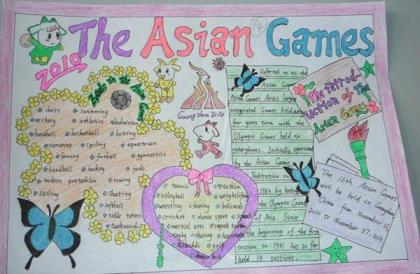 The Asian Games
2010
chess swimming
archery athletics badminton
baseball basketball boxing
canoeing cycling equestrian
fencing football gymnastics
handball hockey judo
modern pentathlon rowing
sailing shooting
softball
table tennis
taekwondo
tennis triathlon
volleyball weightlifting
wrestling bowling
cricket dance sport
martial arts
kabaddi golf
Referred to as the
Asian Games, Asia's largest
integrated Games held every
four years term with the
Olympic Games held in
Initially sponsored
by the Asian Games
Federation
the Olympic Council
of Asia. Since
the beginning of the first
session to 1951 has so far
held 15 sessions.
The Introd-
uction of The
Asian Games
The 16th Asian Games
will be held in Guangzhou
China from November 12,
2010 to November 27, 2010